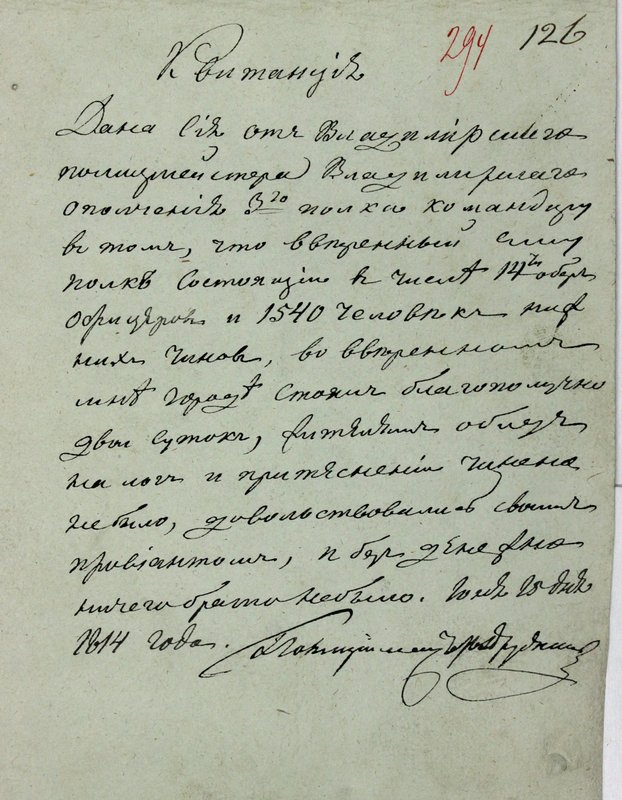 294 126
Квитанцiя
Дана Сiя отъ Владимiрскаго
полицмейстера Владимирскаго
ополченiя 3го полка командиру
въ томъ, что ввѣренный ему
полкъ состоящiй въ числѣ 14ти оберъ
офицеровъ и 1540 человѣкъ ниж
нихъ чиновъ, во ввѣренномъ
мнѣ городѣ стоялъ благополучно
двои сутокъ, жителямъ обидъ
налогъ и притѣсненiй чинено
небыло, довольствовались своимъ
провiантомъ, и без денежно
ничего брато небыло. 15 дня
1814 года. Полицiймейстеръ